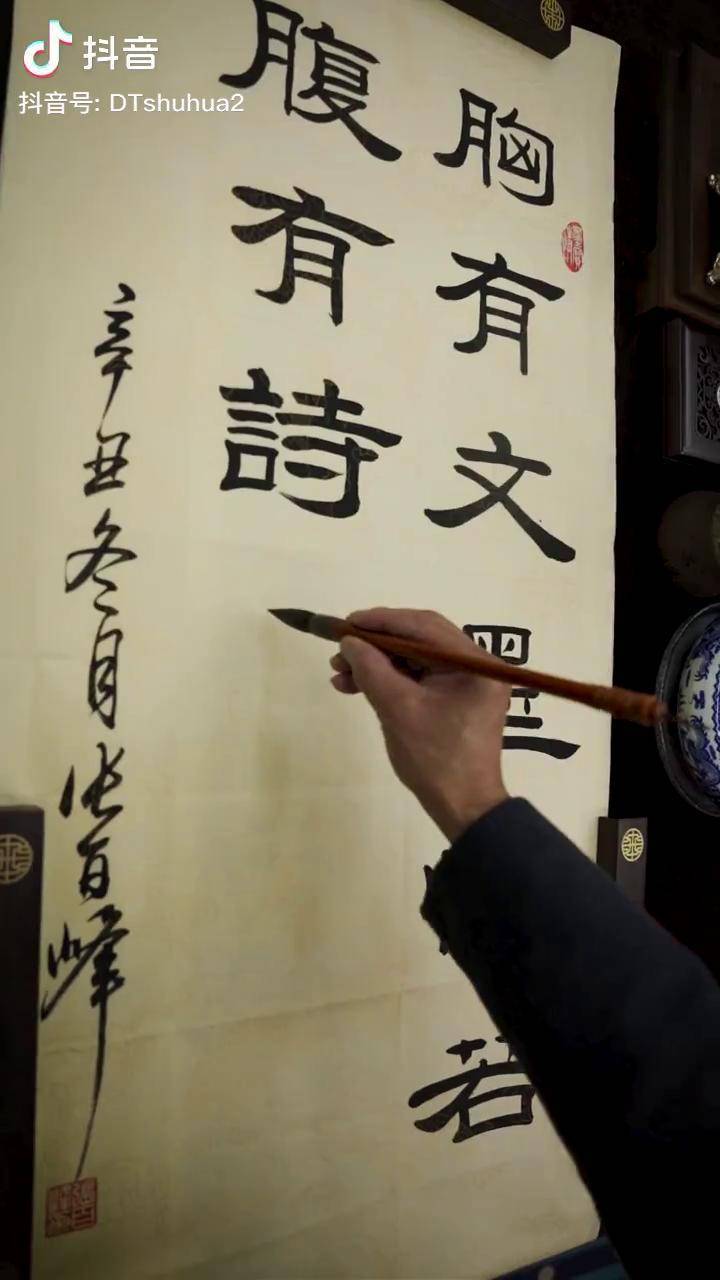 抖音
抖音号: DTshuhua2
胸有文墨若
腹有詩
辛丑冬月张百峰